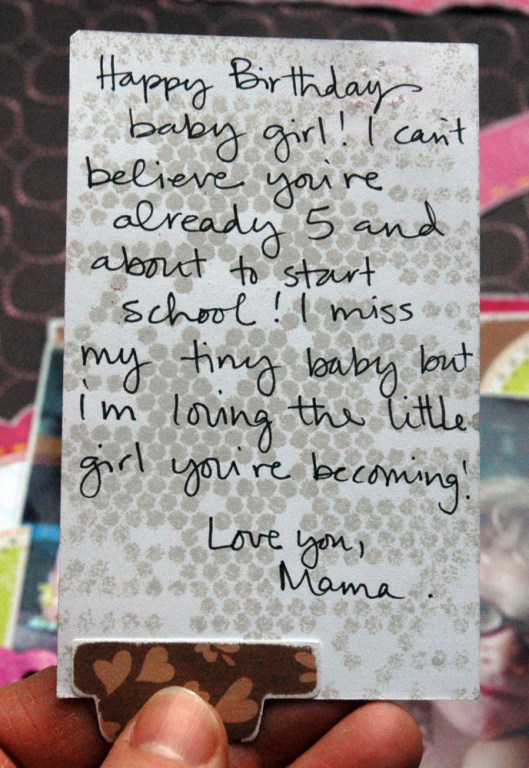 Happy Birthday
baby girl! I can't
believe you're
already 5 and
about to start
school! I miss
my tiny baby but
i'm loving the little
girl you're becoming!
Love you,
Mama.